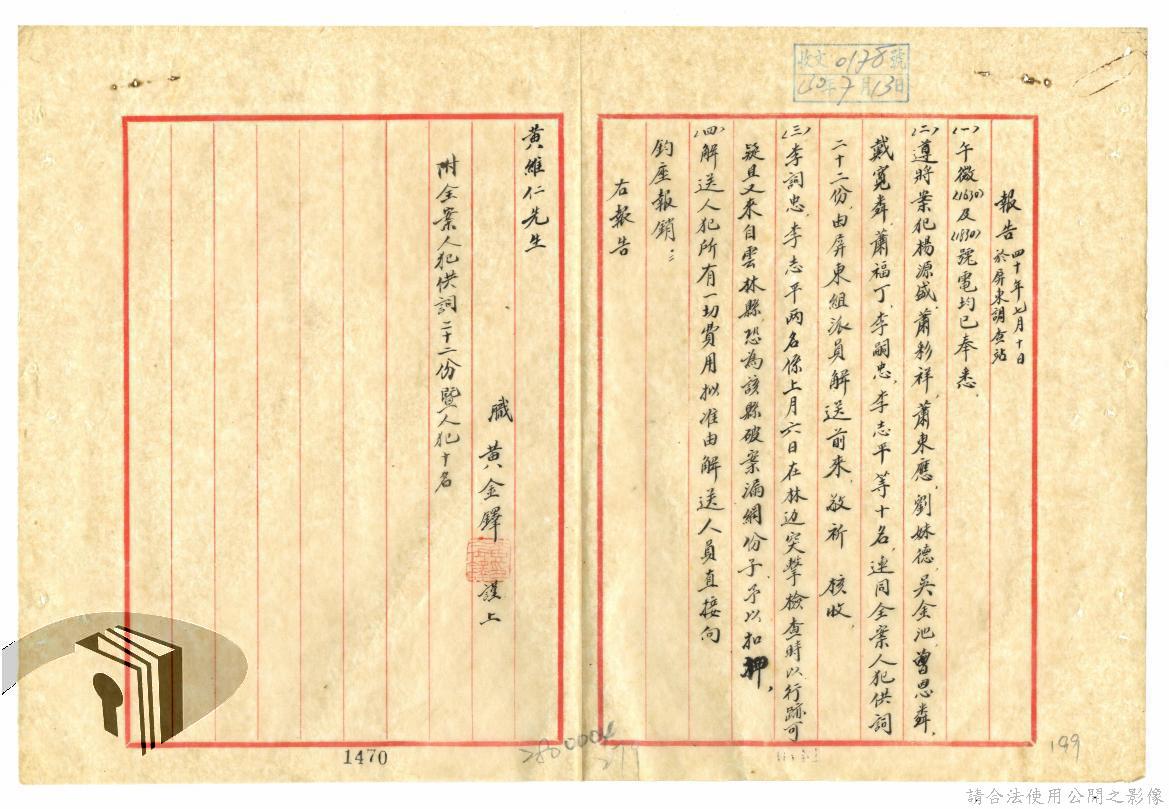 收文0178號
40年7月13日
報告 四十年七月十日
於屏東調查站
(一)午微(1630)及(1830)號電均已奉悉。
(二)遵將案犯楊源盛、蕭彩祥、蕭東應、劉妹德、吳金池、曾恩舜、
戴寬舜、蕭福丁、李嗣忠、李志平等十名,連同全案人犯供詞
二十二份,由屏東組派員解送前來,敬祈 核收。
(三)李詞忠、李志平兩名係上月六日在林边突擊檢查時以行跡可
疑且又來自雲林縣,恐為該縣破案漏網份子,予以扣押。
(四)解送人犯所有一切費用拟准由解送人員直接向
鈞座報銷:
右報告
黃維仁先生
職 黃金鐸 謹上
附全案人犯供詞二十二份暨人犯十名
1470
199
請合法使用公開之影像